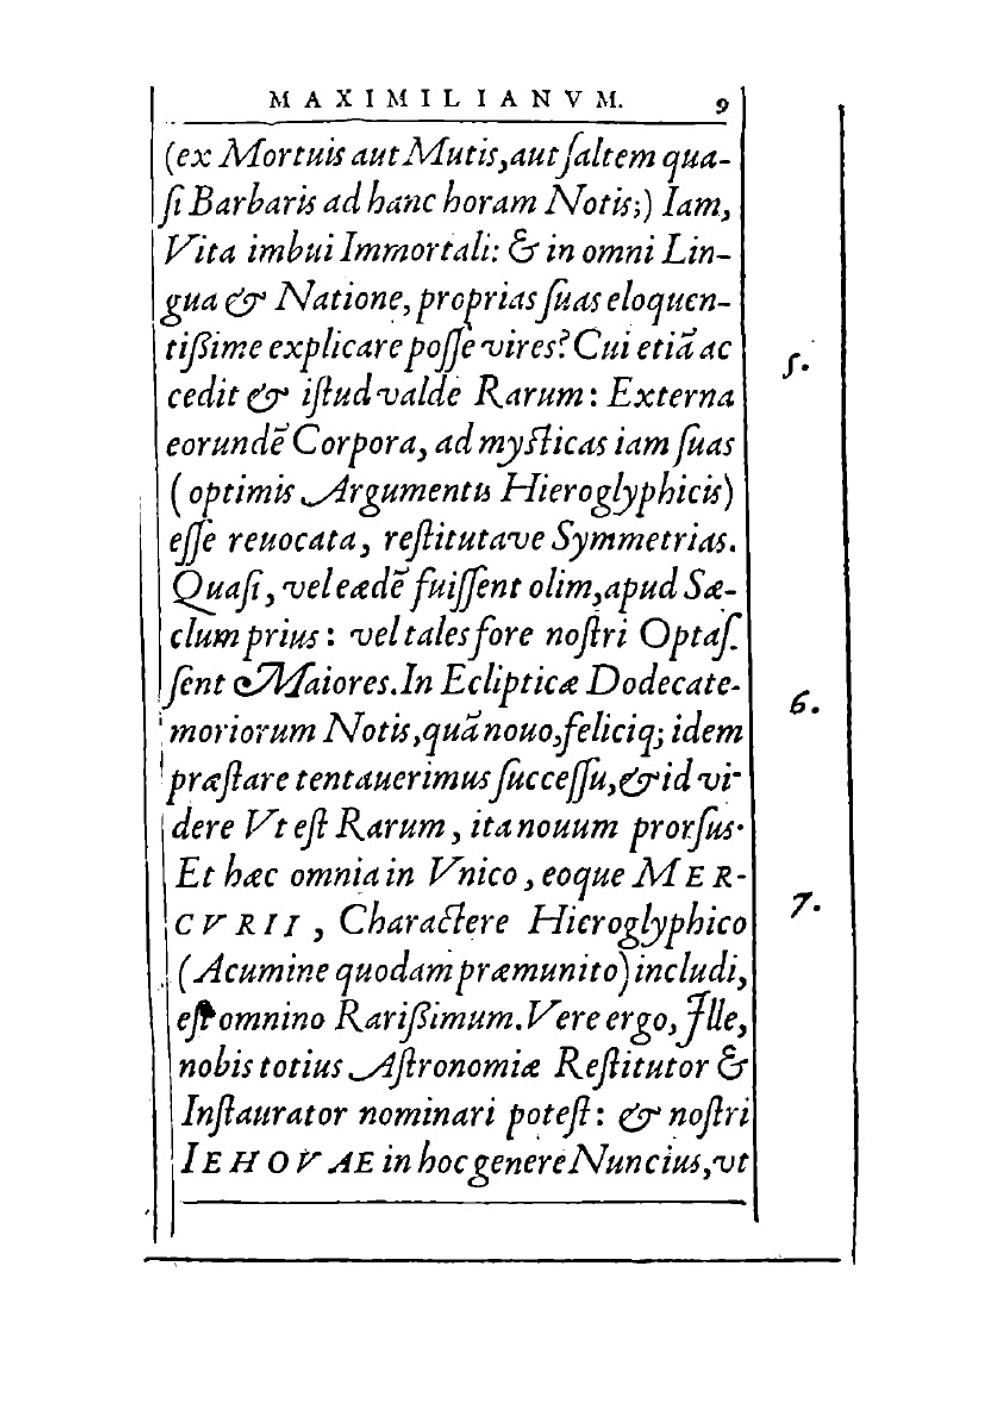 MAXIMILIANVM. 9
(ex Mortuis aut Mutis, aut ſaltem qua-
ſi Barbaris ad hanc horam Notis;) Iam,
Vita imbui Immortali: & in omni Lin-
gua & Natione, proprias ſuas eloquen-
tißime explicare poſſe vires? Cui etiã ac
5.
cedit & iſtud valde Rarum: Externa
eorundẽ Corpora, ad myſticas iam ſuas
(optimis Argumentis Hieroglyphicis)
eſſe reuocata, reſtitutave Symmetrias.
Quaſi, vel eædẽ fuiſſent olim, apud Sæ-
clum prius: vel tales fore noſtri Optaſ-
ſent Maiores. In Eclipticæ Dodecate-
6.
moriorum Notis, quã nouo, feliciq; idem
præſtare tentauerimus ſucceſſu, & id vi-
dere Vt eſt Rarum, ita nouum prorſus.
Et hæc omnia in Vnico, eoque MER-
7.
CVRII, Charactere Hieroglyphico
(Acumine quodam præmunito) includi,
eſt omnino Rarißimum. Vere ergo, Ille,
nobis totius Aſtronomiæ Reſtitutor &
Inſtaurator nominari poteſt: & noſtri
IEHOVAE in hoc genere Nuncius, vt